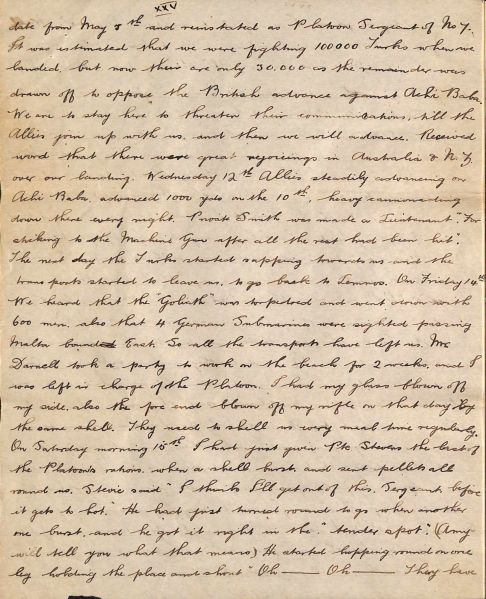 XXV
date from May 8th and reinstated as Platoon Sergeant of No 7.
It was estimated that we were fighting 100000 Turks when we
landed, but now their are only 30.000 as the remainder was
drawn off to oppose the British advance against Achi Baba.
We are to stay here to threaten their communications, till the
Allies join up with us, and then we will advance. Received
word that there were great rejoicings in Australia & N.Z.
over our landing. Wednesday 12th Allies steadily advancing on
Achi Baba, advanced 1000 yds on the 10th, heavy cannonading
down there every night. Private Smith was made a Lieutenant, "For
sticking to the Machine Gun after all the rest had been hit".
The next day the Turks started sapping towards us and the
transports started to leave us, to go back to Lemnos. On Friday 14th
We heard that the "Goliath" was torpedoed and went down with
600 men, also that 4 German Submarines were sighted passing
Malta bound East. So all the transports have left us. Mr
Darnell took a party to work on the beach for 2 weeks, and I
was left in charge of the Platoon. I had my glass blown off
my side, also the fore end blown off my rifle on that day by
the same shell. They used to shell us every meal time regularly.
On Saturday morning 15th I had just given Pte Stevens the last of
the Platoons rations, when a shell burst, and sent pellets all
round us, Stevie said "I think I'll get out of this, Sergeant, before
it gets to hot." He had just turned round to go when another
one burst, and he got it right in the "tender spot". (Amy
will tell you what that means) He started hopping round on one
leg holding the place and shout "Oh —— Oh —— They have